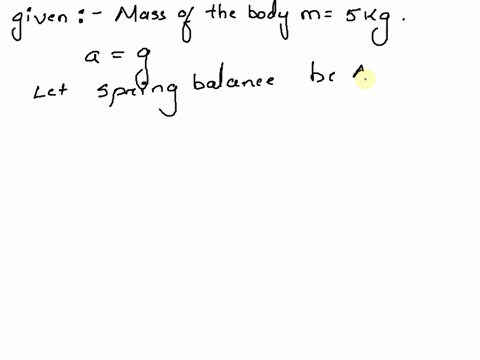 given :- Mass of the body m = 5 kg.
a = g
Let spring balance be